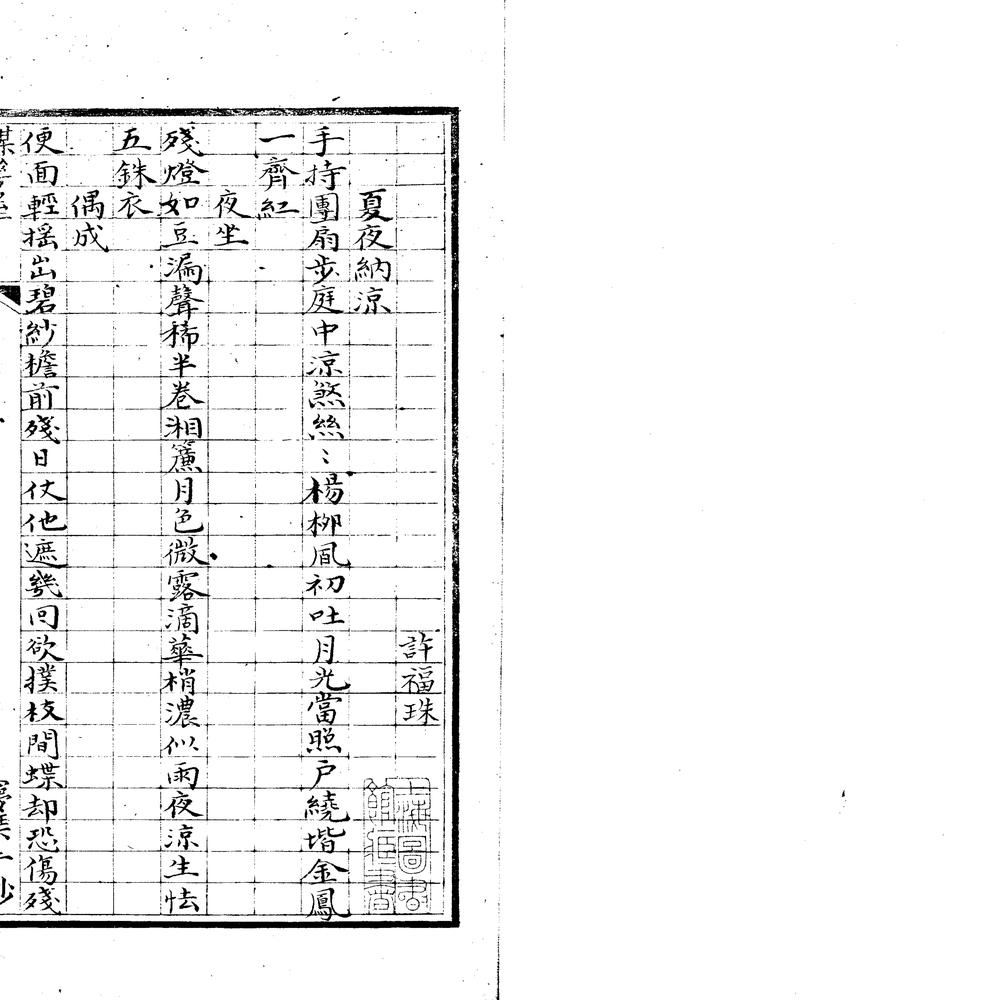 許福珠
夏夜納涼
手持團扇步庭中涼煞絲〻楊柳風初吐月光當照戶繞堦金鳳
一齊紅
夜坐
殘燈如豆漏聲稀半卷湘簾月色微露滴華梢濃似雨夜涼生怯
五銖衣
偶成
便面輕搖出碧紗檐前殘日仗他遮幾回欲撲枝間蝶却恐傷殘
上海圖書館藏書